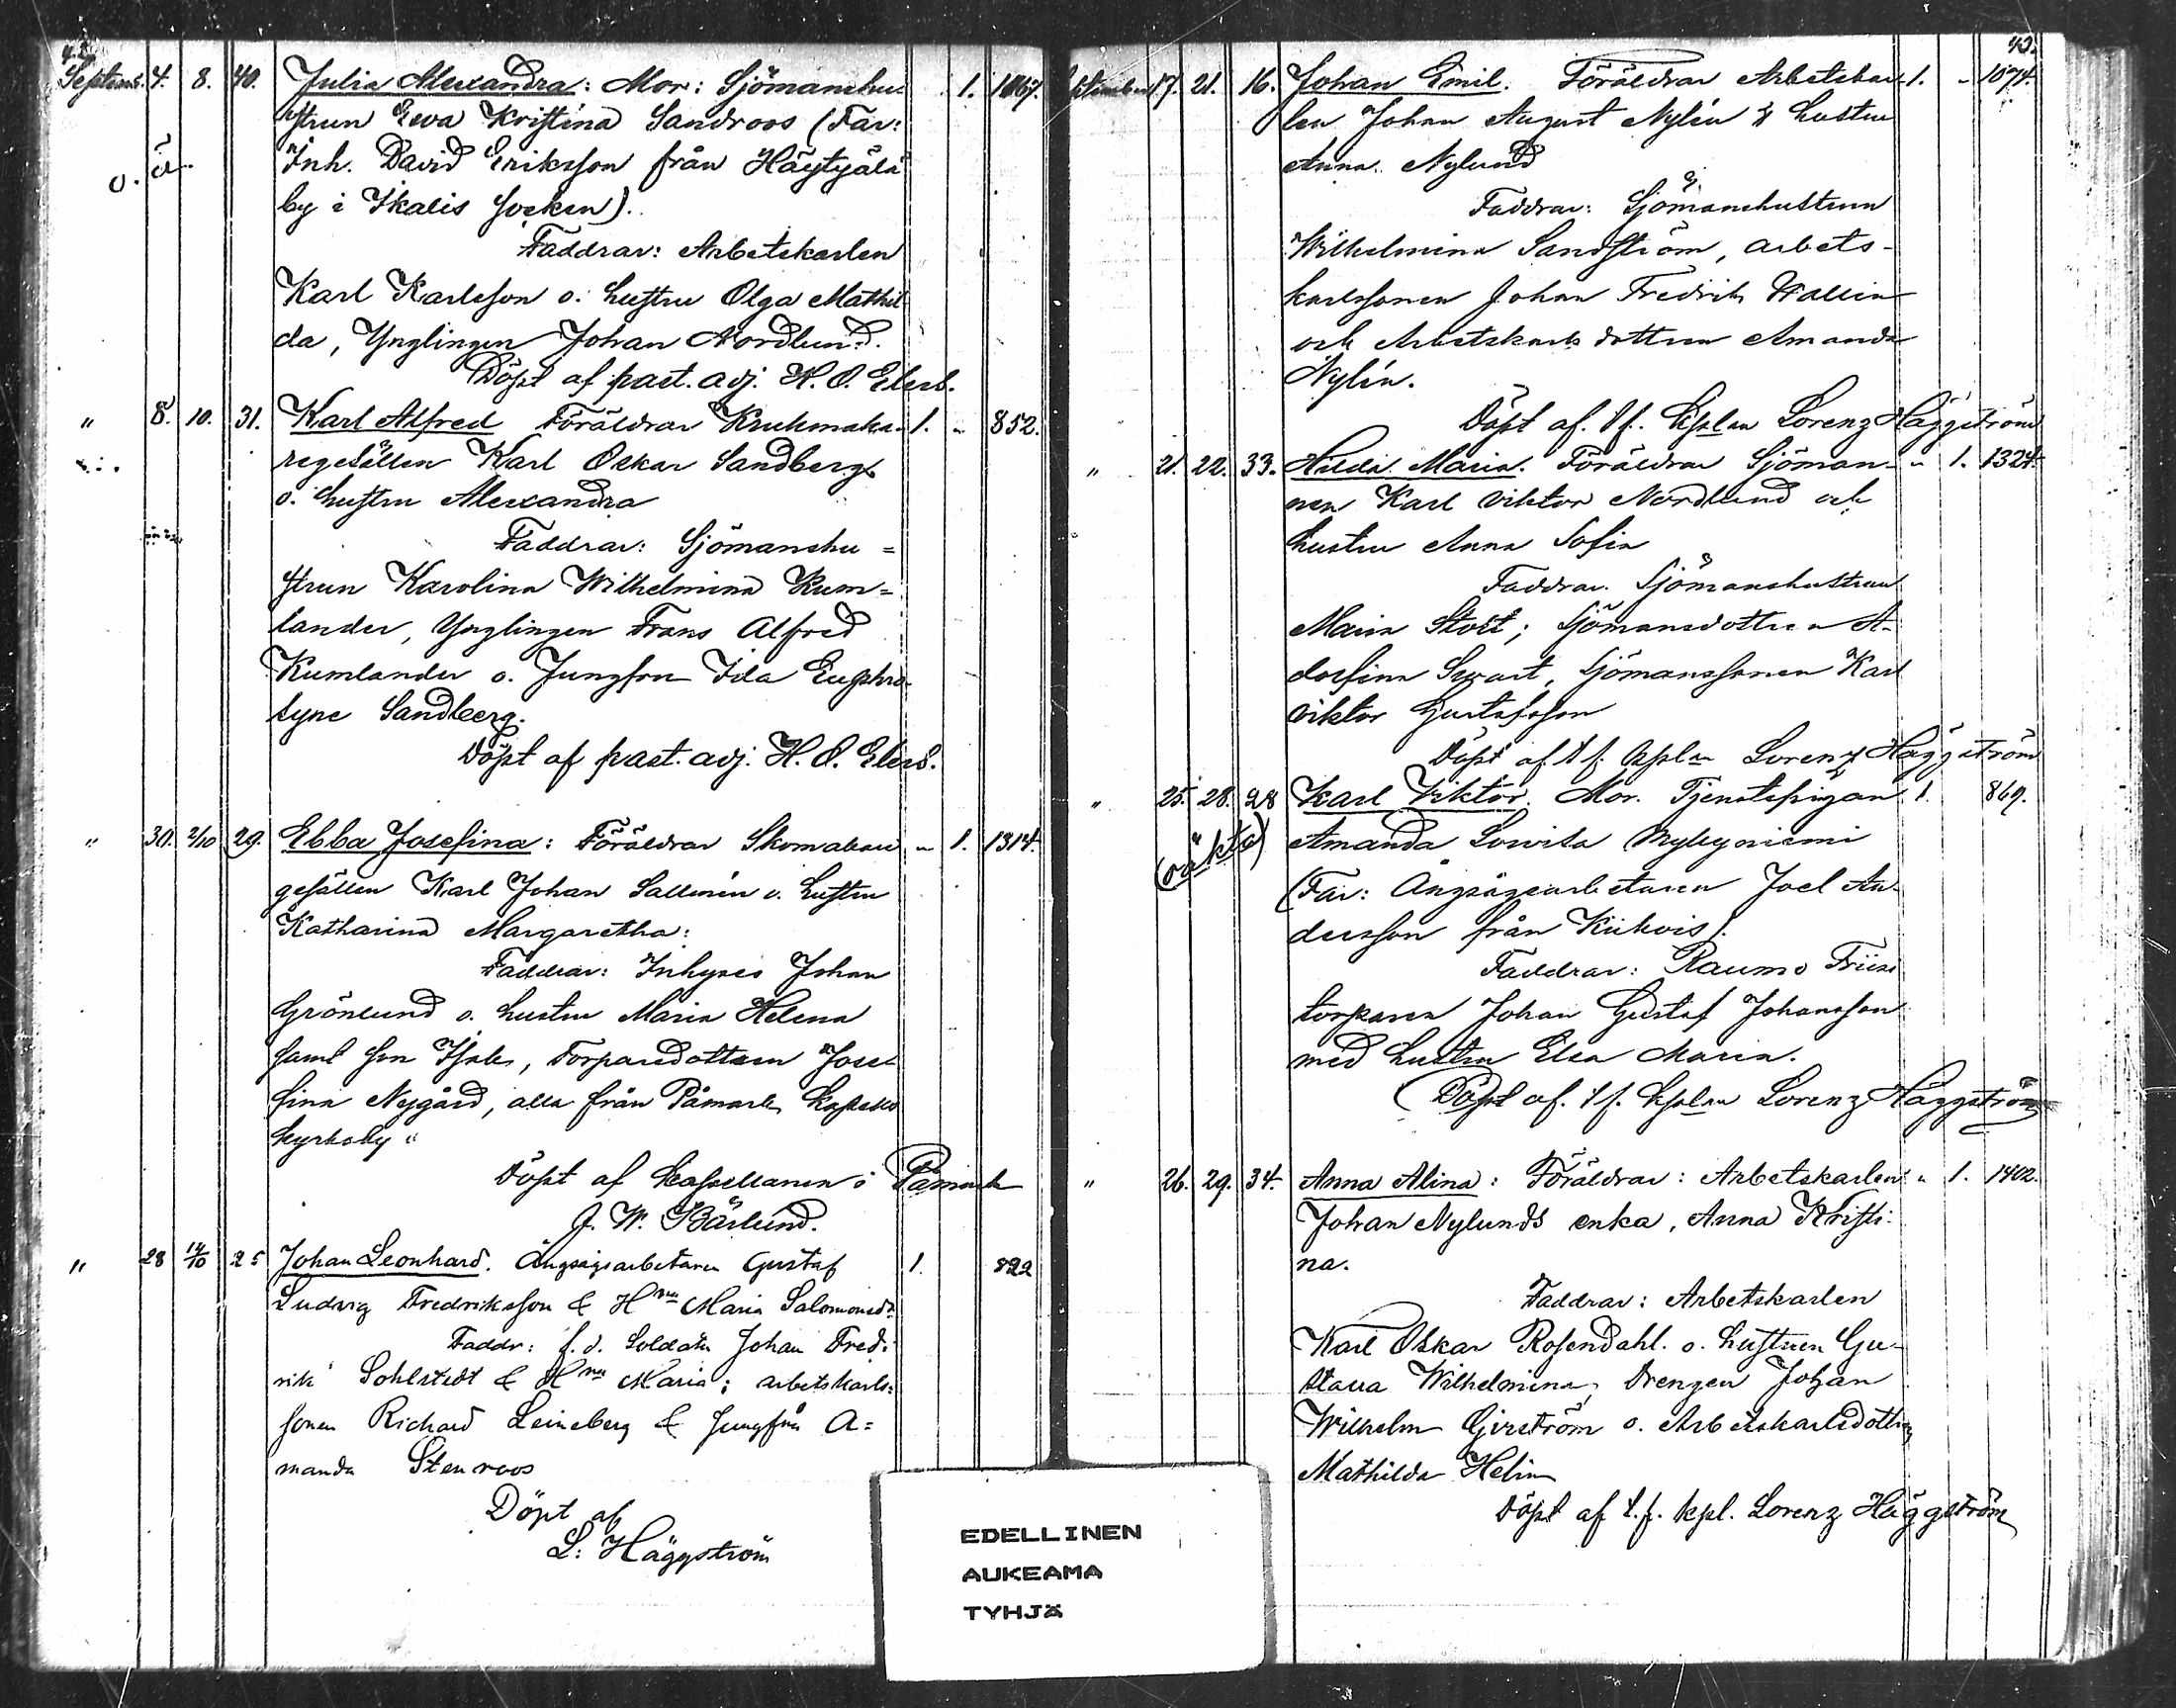 Septemb. 4. 8. 40. Julia Alexandra: Mor: Sjömanshu- 1. 1067.
strun Ewa Kristina Sandroos (Far:
o. ä. Inh. David Eriksson från Höytyälä
by i Ikalis socken).
Faddrar: Arbetskarlen
Karl Karlsson o. hustru Olga Mathil
da, Ynglingen Johan Nordlund.
Döpt af past. adj. H. O. Elers.
" 8. 10. 31. Karl Alfred Föräldrar Krukmaka- 1. " 852.
regesällen Karl Oskar Sandberg
o. hustru Alexandra
Faddrar: Sjömanshu =
strun Karolina Wilhelmina Kum=
lander, Ynglingen Frans Alfred
Kumlander o. Jungfrun Ida Euphro-
syne Sandberg.
Döpt af past. adj. H. O. Elers.
" 30. 2/10 29. Ebba Josefina: Föräldrar Skomakare " 1. 1314.
gesällen Karl Johan Sallinén o. hustru
Katharina Margaretha:
Faddrar: Inhyses Johan
Grönlund o. hustru Maria Helena
samt son Isak, Torparedottren Jose-
fina Nygård, alla från Påmark Kapells
kyrkoby "
Döpt af Kapellanen i Påmark
J. W. Bärlund.
" 28 12/10 25 Johan Leonhard. Ångsågsarbetaren Gustaf 1. 822
Ludvig Fredriksson & Hru Maria Salomonsdr
Faddr: f. d. Soldaten Johan Fred-
rik Sohlstedt & Hru Maria; arbetskarls-
sonen Richard Leineberg & Jungfru A=
manda Stenroos
Döpt af
L: Häggström
EDELLINEN
AUKEAMA
TYHJÄ
43.
September 17. 21. 16. Johan Emil. Föräldrar Arbetskar- 1. " 1074.
len Johan August Nylén & hustru
Anna Nylund
Faddrar: Sjömanshustrun
Wilhelmina Sandström, arbets-
karlssonen Johan Fredrik Wallin
och Arbetskarls dottren Amanda
Nylén.
Döpt af. t f. Kplan Lorenz Häggström
" 21. 22. 33. Hilda Maria. Föräldrar Sjöman- " 1. 1324.
nen Karl Viktor Nordlund och
hustru Anna Sofia
Faddrar. Sjömanshustrun
Maria Stolt; Sjömansdottren A-
dolfina Swart, Sjömanssonen Karl
Viktor Gustafsson
Döpt af t f. Kplan Lorenz Häggström
" 25. 28. 28 Karl Viktor. Mor. Tjenstepigan 1. 869.
(oäkta) Amanda Lovisa Myllyniemi
(Far: Ångsågsarbetaren Joel An-
dersson från Kiikois).
Faddrar: Raumo Friise
torparen Johan Gustaf Johansson
med hustru Elsa Maria.
Döpt af. t f. Kplan Lorenz Häggström
" 26. 29. 34. Anna Alina: Föräldrar: Arbetskarlen " 1. 1402.
Johan Nylunds enka, Anna Kristi-
na.
Faddrar: Arbetskarlen
Karl Oskar Rosendahl. o. hustrun Gu-
stava Wilhelmina, Drengen Johan
Wilhelm Girström o. Arbetskarlsdottren
Mathilda Helin
Döpt af t. f. kpl. Lorenz Häggström